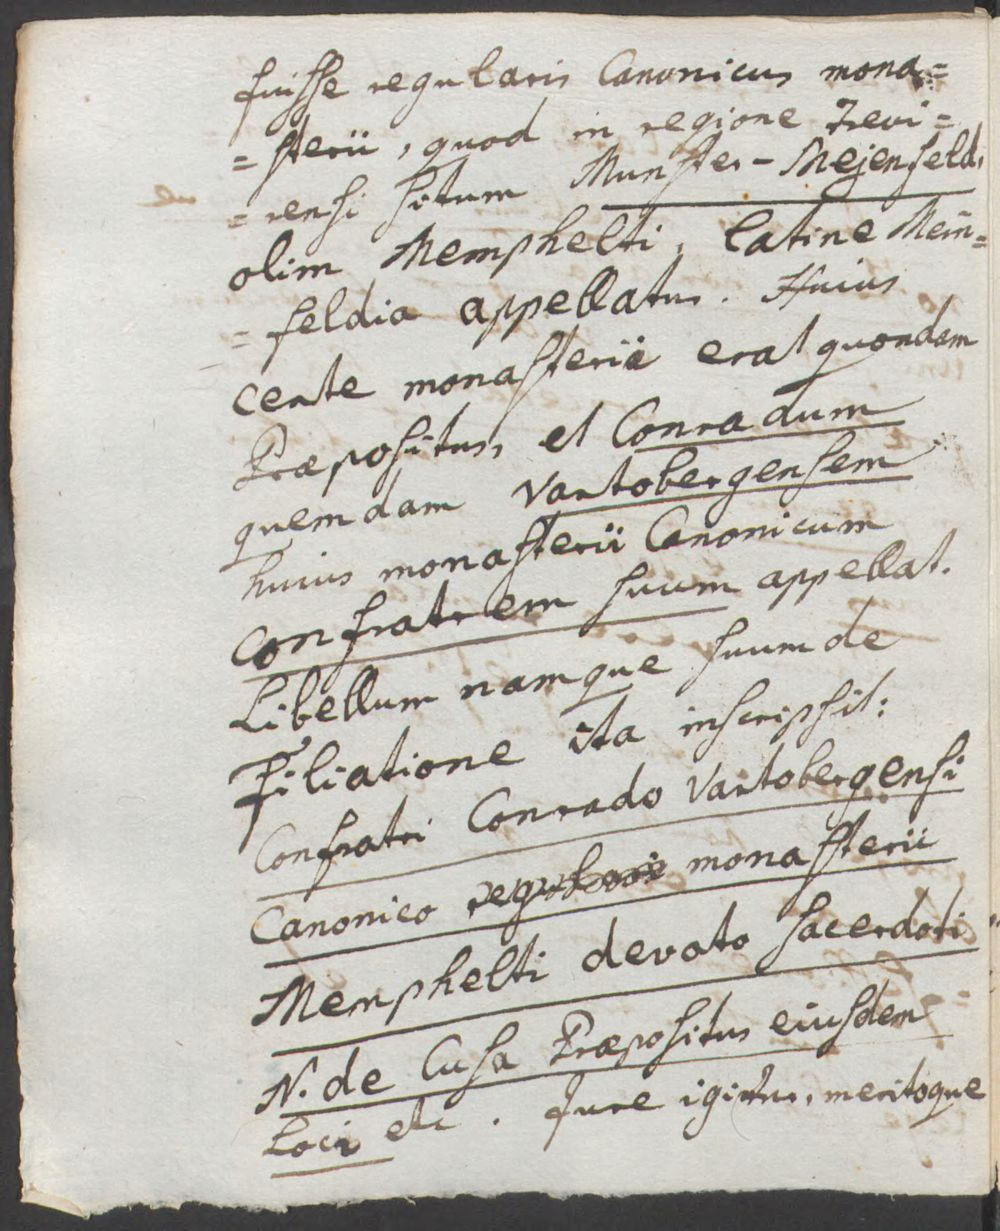 fuisse regularis Canonicus mona=
=sterii, quod in regione Trevi=
=rensi situm Munster-Mejenfeld,
olim Memphelti, latine Mein=
=feldia appellatur. Huius
certe monasterii erat quondam
Præpositus, et Conradum
quemdam Vartobergensem
huius monasterii Canonicum
confratrem suum appellat.
Libellum namque suum de
Filiatione ita inscripsit:
Confratri Conrado Vartobergensi
Canonico monasterii
Memphelti devoto sacerdoti
N. de Cusa Præpositus eiusdem
Loci etc. Jure igitur, meritoque